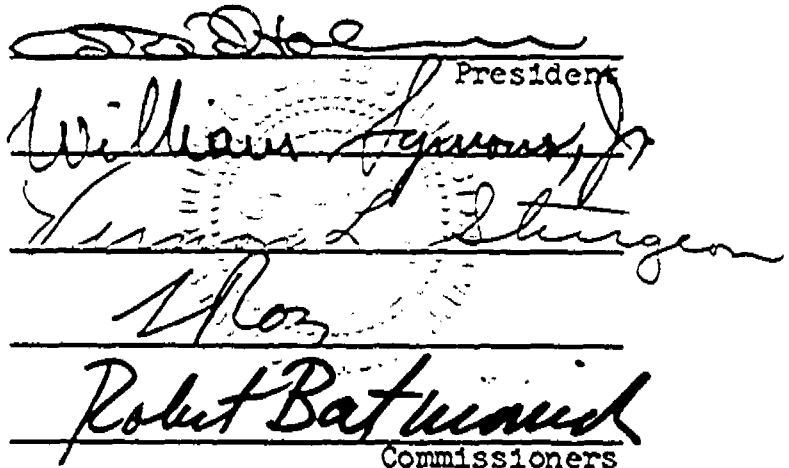 President
William Symons, Jr
Vernon L. Sturgeon
Robert Batinovich
Commissioners